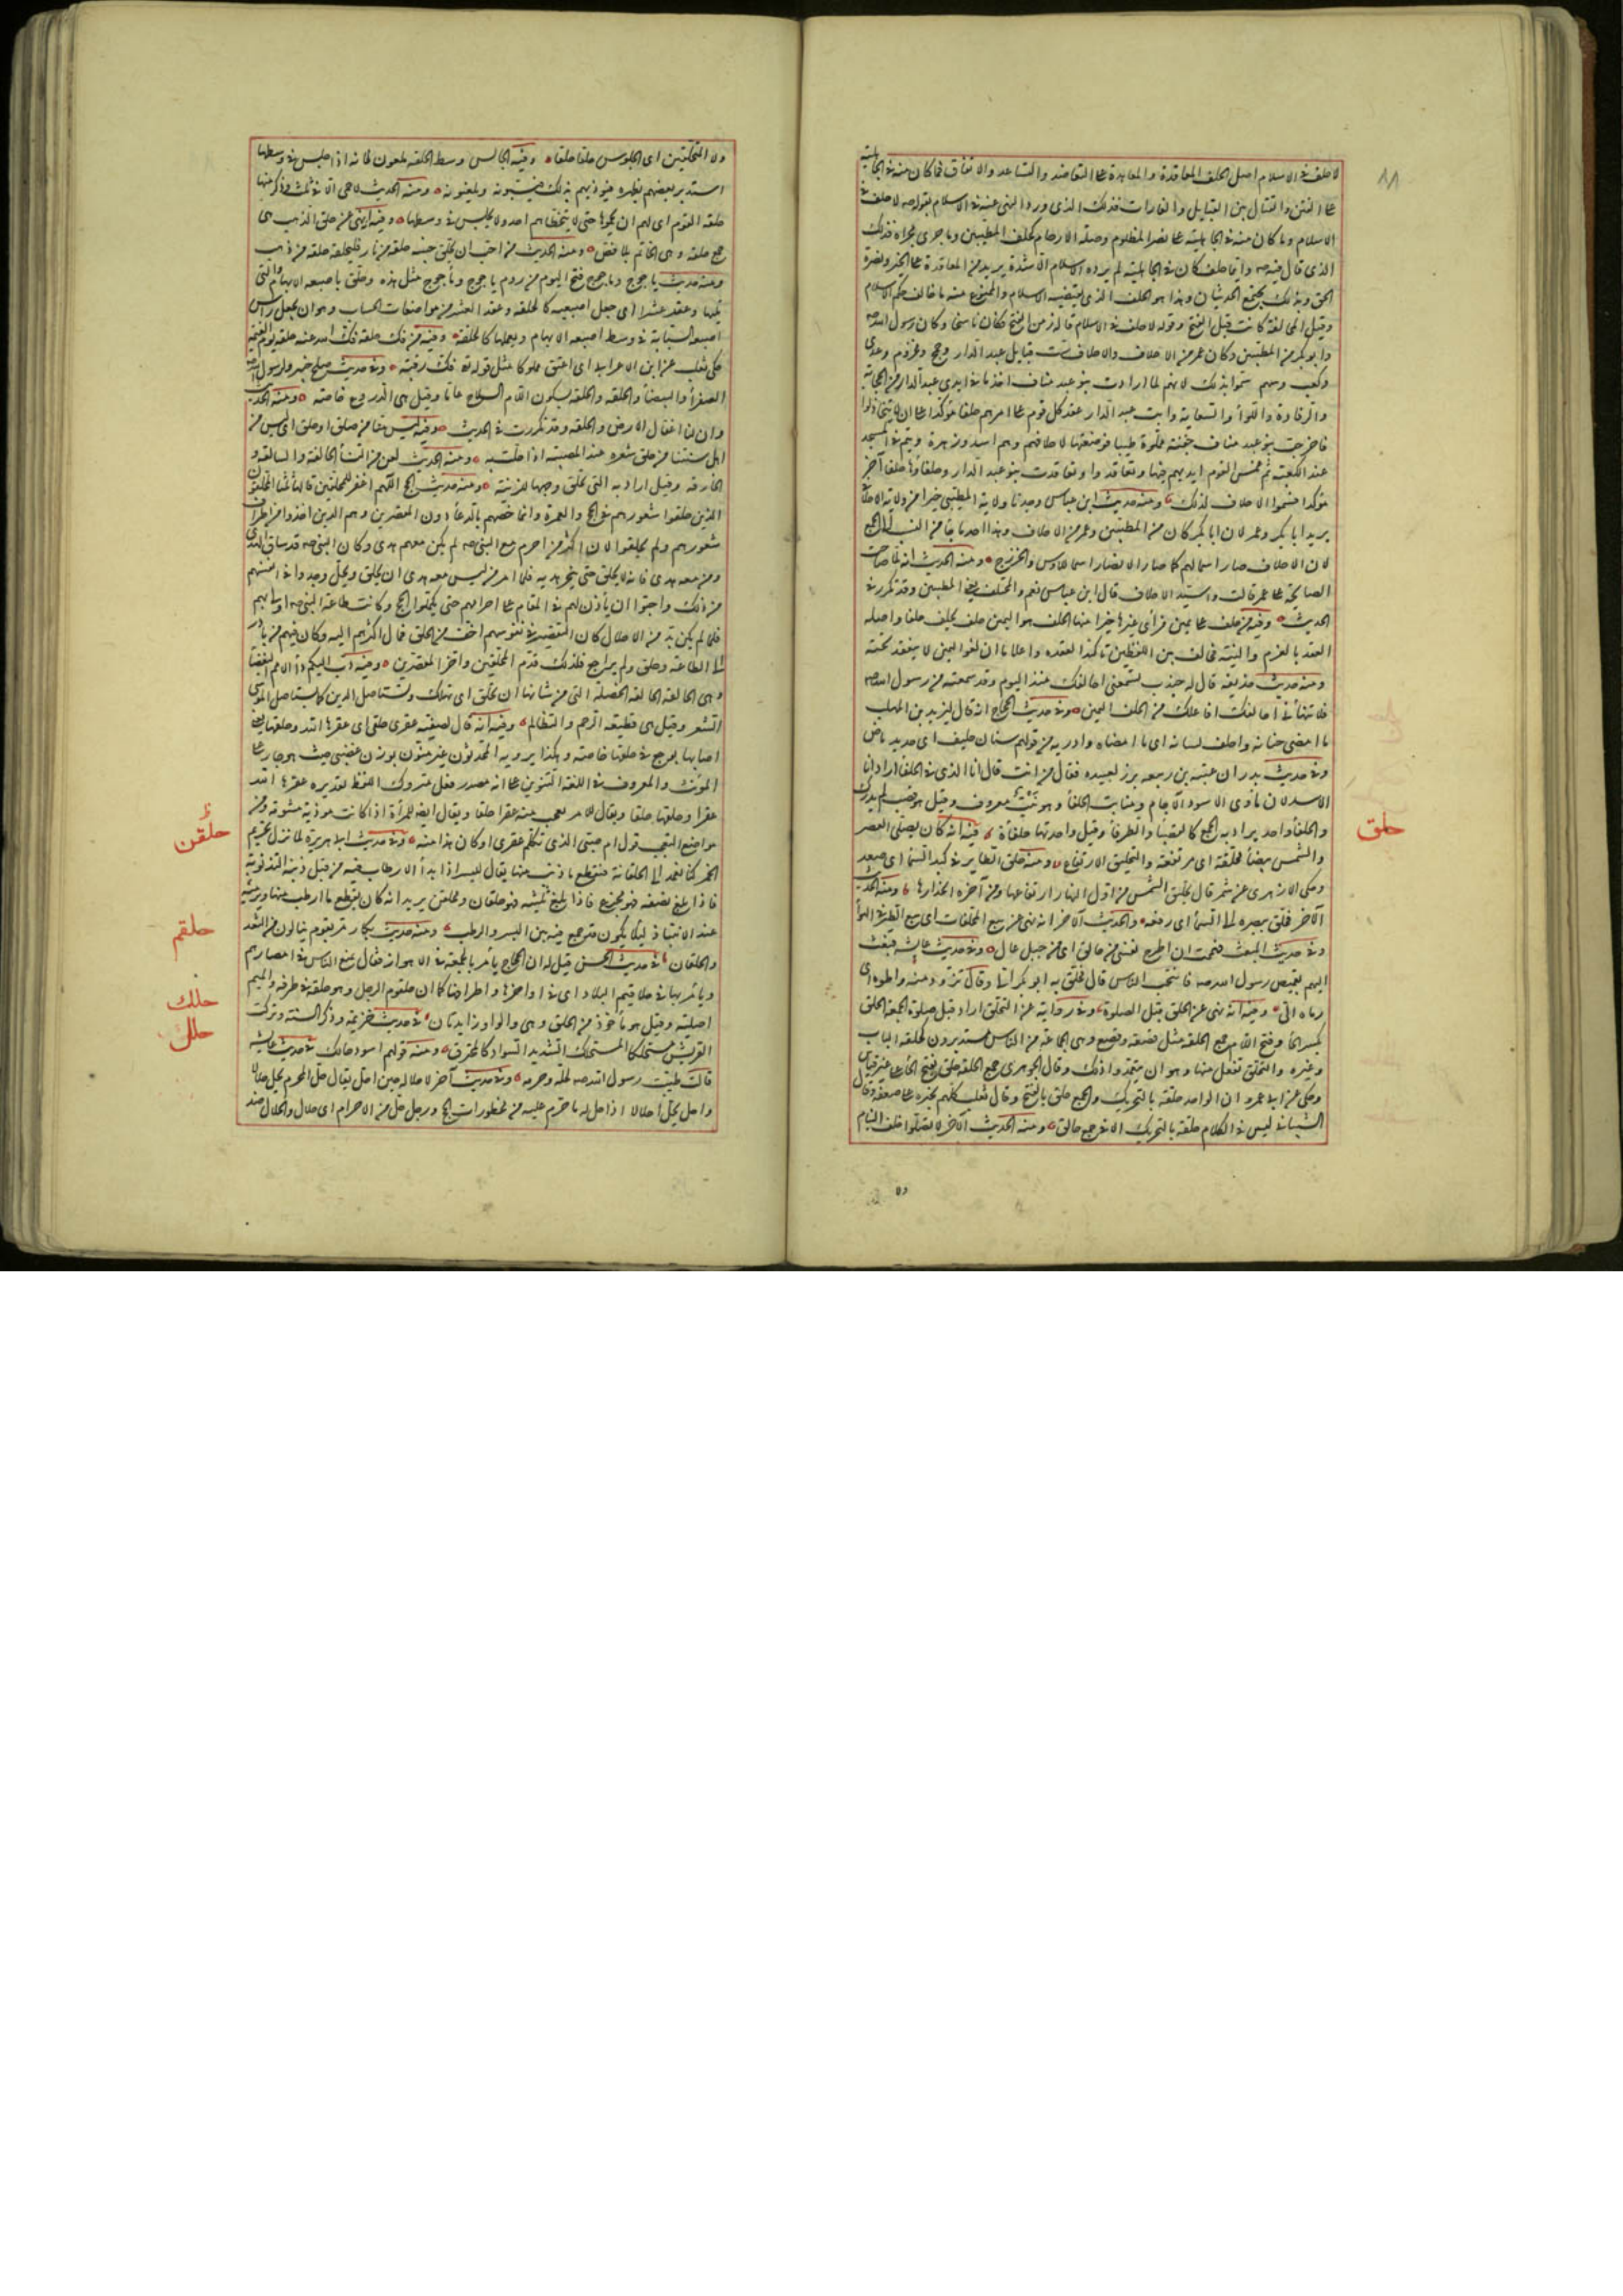 ١١
لا حلف فى الاسلام اصل الحلف المعاقدة والمعاهدة على التعاضد والتساعد والاتفاق فما كان منه فى الجاهلية
على الفتن والقتال بين القبايل والغارات فذلك الذى ورد النهى عنه فى الاسلام بقوله صه لا حلف فى
الاسلام وما كان منه فى الجاهلية على نصر المظلوم وصلة الارحام كحلف المطيبين وما جرى مجراه فذلك
الذى قال فيه صه وايما حلف كان فى الجاهلية لم يزده الاسلام الا شدة يريد من المعاقدة على الخير ونصرة
الحق وبذلك يجتمع الحديثان وهذا هو الحلف الذى يقتضيه الاسلام والممنوع منه ما خالف حكم الاسلام
وقيل المحالفة كانت قبل الفتح وقوله لا حلف فى الاسلام قاله زمن الفتح فكان ناسخا وكان رسول الله صه
وابو بكر من المطيبين وكان عمر من الاحلاف والاحلاف ست قبايل عبد الدار وجمح ومخزوم وعدى
وكعب وسهم سموا بذلك لانهم لما ارادت بنو عبد مناف اخذ ما فى ايدى عبد الدار من الحجابة
والرفادة واللواء والسقاية وابت عبد الدار عقد كل قوم على امرهم حلفا مؤكدا على ان لا يتخاذلوا
فاخرجت بنو عبد مناف جفنة مملوة طيبا فوضعتها لاحلافهم وهم اسد وزهرة وتيم فى المسجد
عند الكعبة ثم غمس القوم ايديهم فيها وتعاقدوا وتعاقدت بنو عبد الدار وحلفاؤها حلفا آخر
مؤكدا فسموا الاحلاف لذلك ومنه حديث ابن عباس وجدنا ولاية المطيبى خيرا من ولاية الاحلافى
يريد ابا بكر وعمر لان ابا بكر كان من المطيبين وعمر من الاحلاف وهذا احد ما جاء من النسب الى الجمع
لان الاحلاف صار اسما لهم كما صار الانصار اسما للاوس والخزرج ومنه الحديث انه لما صاحت
الصايحة على عمر قالت واسيد الاحلاف قال ابن عباس نعم والمحتلف عليهم يعنى المطيبين وقد تكرر فى
الحديث وفيه من حلف على يمين فراى غيرها خيرا منها الحلف هو اليمين حلف يحلف حلفا واصله
العقد بالعزم والنية فخالف بين اللفظين تاكيدا لعقده واعلاما ان لغو اليمين لا ينعقد تحته
ومنه حديث حذيفه قال له جندب تسمعنى احالفك منذ اليوم وقد سمعته من رسول الله صه
فلا تنهانى احالفك افاعلك من الحلف اليمين وفى حديث الحجاج انه قال ليزيد بن المهلب
ما امضى جنانه واحلف لسانه اى ما امضاه واذربه من قولهم سنان حليف اى حديد ماض
وفى حديث بدر ان عتبة بن ربيعه برز لعبيده فقال من انت قال انا الذى فى الحلفاء اراد انا
الاسد لان ماوى الاسود الآجام ومنابت الحلفاء وهو نبت معروف وقيل هو قصب لم يدرك
والحلفاء واحد يراد به الجمع كالقصباء والطرفاء وقيل واحدتها حلفاة فيه انه كان يصلى العصر
والشمس بيضاء محلقة اى مرتفعة والتحليق الارتفاع ومنه حلق الطاير فى كبد السماء اى صعد
وحكى الازهرى عن شمر قال تحليق الشمس من اول النهار ارتفاعها ومن آخره انحدارها ومنه الحديث
الآخر فحلق ببصره الى السماء اى رفعه والحديث الآخر انه نهى عن بيع المحلقات اى بيع الطير فى الهواء
وفى حديث المبعث فهممت ان اطرح نفسى من حالق اى من جبل عال وفى حديث عايشه فبعثت
اليهم بقميص رسول الله صه فانتحب الناس قال فحلق به ابو بكر الى وقال تزود منه واطوه اى
رماه الى وفيه انه نهى عن الحلق قبل الصلوة وفى رواية عن التحلق اراد قبل صلوة الجمعة الحلق
بكسر الحاء وفتح اللام جمع الحلقة مثل قصعة وقصع وهى الجماعة من الناس مستديرون كحلقة الباب
وغيره والتحلق تفعل منها وهو ان يتعمدوا ذلك وقال الجوهرى جمع الحلقة حلق بفتح الحاء على غير قياس
وحكى عن ابى عمرو ان الواحد حلقة بالتحريك والجمع حلق بالفتح وقال ثعلب كلهم يجيزه على ضعفه وقال
الشيبانى ليس فى الكلام حلقة بالتحريك الا فى جمع حالق ومنه الحديث الآخر لا تصلوا خلف النيام
حلق
ولا
ولا المتحلقين اى الجلوس حلقا حلقا وفيه الجالس وسط الحلقة ملعون لانه اذا جلس فى وسطها
استدبر بعضهم بظهره فيؤذيهم بذلك فيسبونه ويلعنونه ومنه الحديث لا حمى الا فى ثلث وذكر منها
حلقة القوم اى لهم ان يحموها حتى لا يتخطاهم احد ولا يجلس فى وسطها وفيه انه نهى عن حلق الذهب هى
جمع حلقة وهى الخاتم بلا فص ومنه الحديث من احب ان يحلق جبينه حلقة من نار فليحلقه حلقة من ذهب
ومنه حديث ياجوج وماجوج فتح اليوم من ردم ياجوج وماجوج مثل هذه وحلق باصبعه الابهام والتى
تليها وعقد عشرا اى جعل اصبعيه كالحلقة وعقد العشر من مواضعات الحساب وهو ان يجعل راس
اصبعه السبابة فى وسط اصبعه الابهام ويعملها كالحلقة وفيه من فك حلقة فك الله عنه حلقة يوم القيمة
حكى ثعلب عن ابن الاعرابى اى اعتق مملوكا مثل قوله فك رقبة وفى حديث صلح خيبر ولرسول الله صه
الصفراء والبيضاء والحلقة والحلقة بسكون اللام السلاح عاما وقيل هى الدروع خاصة ومنه الحديث
وان لنا اغفال الارض والحلقة وقد تكررت فى الحديث وفيه ليس منا من صلق او حلق اى ليس من
اهل سنتنا من حلق شعره عند المصيبة اذا حلت به ومنه الحديث لعن من النساء الحالقة والسالقة و
الخارقة وقيل اراد به التى تحلق وجهها للزينة ومنه حديث الحج اللهم اغفر للمحلقين قالها ثلثا المحلقون
الذين حلقوا شعورهم فى الحج والعمرة وانما خصهم بالدعاء دون المقصرين وهم الذين اخذوا من اطراف
شعورهم ولم يحلقوا لان اكثر من احرم مع النبى صه لم يكن معهم هدى وكان النبى صه قد ساق الهدى
ومن معه هدى فانه لا يحلق حتى ينحر هديه فلما امر من ليس معه هدى ان يحلق ويحل وجدوا فى انفسهم
من ذلك واحبوا ان ياذن لهم فى المقام على احرامهم حتى يكملوا الحج وكانت طاعة النبى صه اولى بهم
فلما لم يكن بد من الاحلال كان التقصير فى نفوسهم اخف من الحلق فمال اكثرهم اليه وكان فيهم من بادر
الى الطاعة وحلق ولم يراجع فلذلك قدم المحلقين واخر المقصرين وفيه دب اليكم داء الامم البغضاء
وهى الحالقة الحالقة الخصلة التى من شانها ان تحلق اى تهلك وتستاصل الدين كما يستاصل الموسى
الشعر وقيل هى قطيعة الرحم والتظالم وفيه انه قال لصفية عقرى حلقى اى عقرها الله وحلقها يعنى
اصابها بوجع فى حلقها خاصة وهكذا يرويه المحدثون غير منون بوزن غضبى حيث هو جار على
المؤنث والمعروف فى اللغة التنوين على انه مصدر فعل متروك اللفظ تقديره عقرها الله
عقرا وحلقها حلقا ويقال للامر يعجب منه عقرا حلقا ويقال ايضا للمراة اذا كانت موذية مشومة ومن
مواضع التعجب قول ام صبى الذى تكلم عقرى اوكان هذا منه وفى حديث ابى هريرة لما نزل تحريم
الخمر كنا نعمد الى الحلقانة فنقطع ما ذنب منها يقال للبسر اذا بدا الارطاب فيه من قبل ذنبه التذنوبة
فاذا بلغ نصفه فهو مجزع فاذا بلغ ثلثيه فهو حلقان ومحلقن يريد انه كان يقطع ما ارطب منها ويرميه
عند الانتباذ ليلا يكون قد جمع فيه بين البسر والرطب ومنه حديث بكار مر بقوم ينالون من الثعد
والحلقان فى حديث الحسن قيل له ان الحجاج يامر بالجمعة فى الاهواز فقال يمنع الناس فى امصارهم
ويامر بها فى حلاقيم البلاد اى فى اواخرها واطرافها كما ان حلقوم الرجل وهو حلقه فى طرفه والميم
اصلية وقيل هو ماخوذ من الحلق وهى والواو زايدتان فى حديث خزيمة وذكر السنة وتركت
الفريش مستحلكا المستحلك الشديد السواد كالمحترق ومنه قولهم اسود حالك فى حديث عايشه
قالت طيبت رسول الله صه لحله وحرمه وفى حديث آخر لاحلاله حين احل يقال حل المحرم يحل حلالا
واحل يحل احلالا اذا حل له ما حرم عليه من محظورات الحج ورجل حل من الاحرام اى حلال والحلال ضد
حلقن
حلقم
حلك
حلل